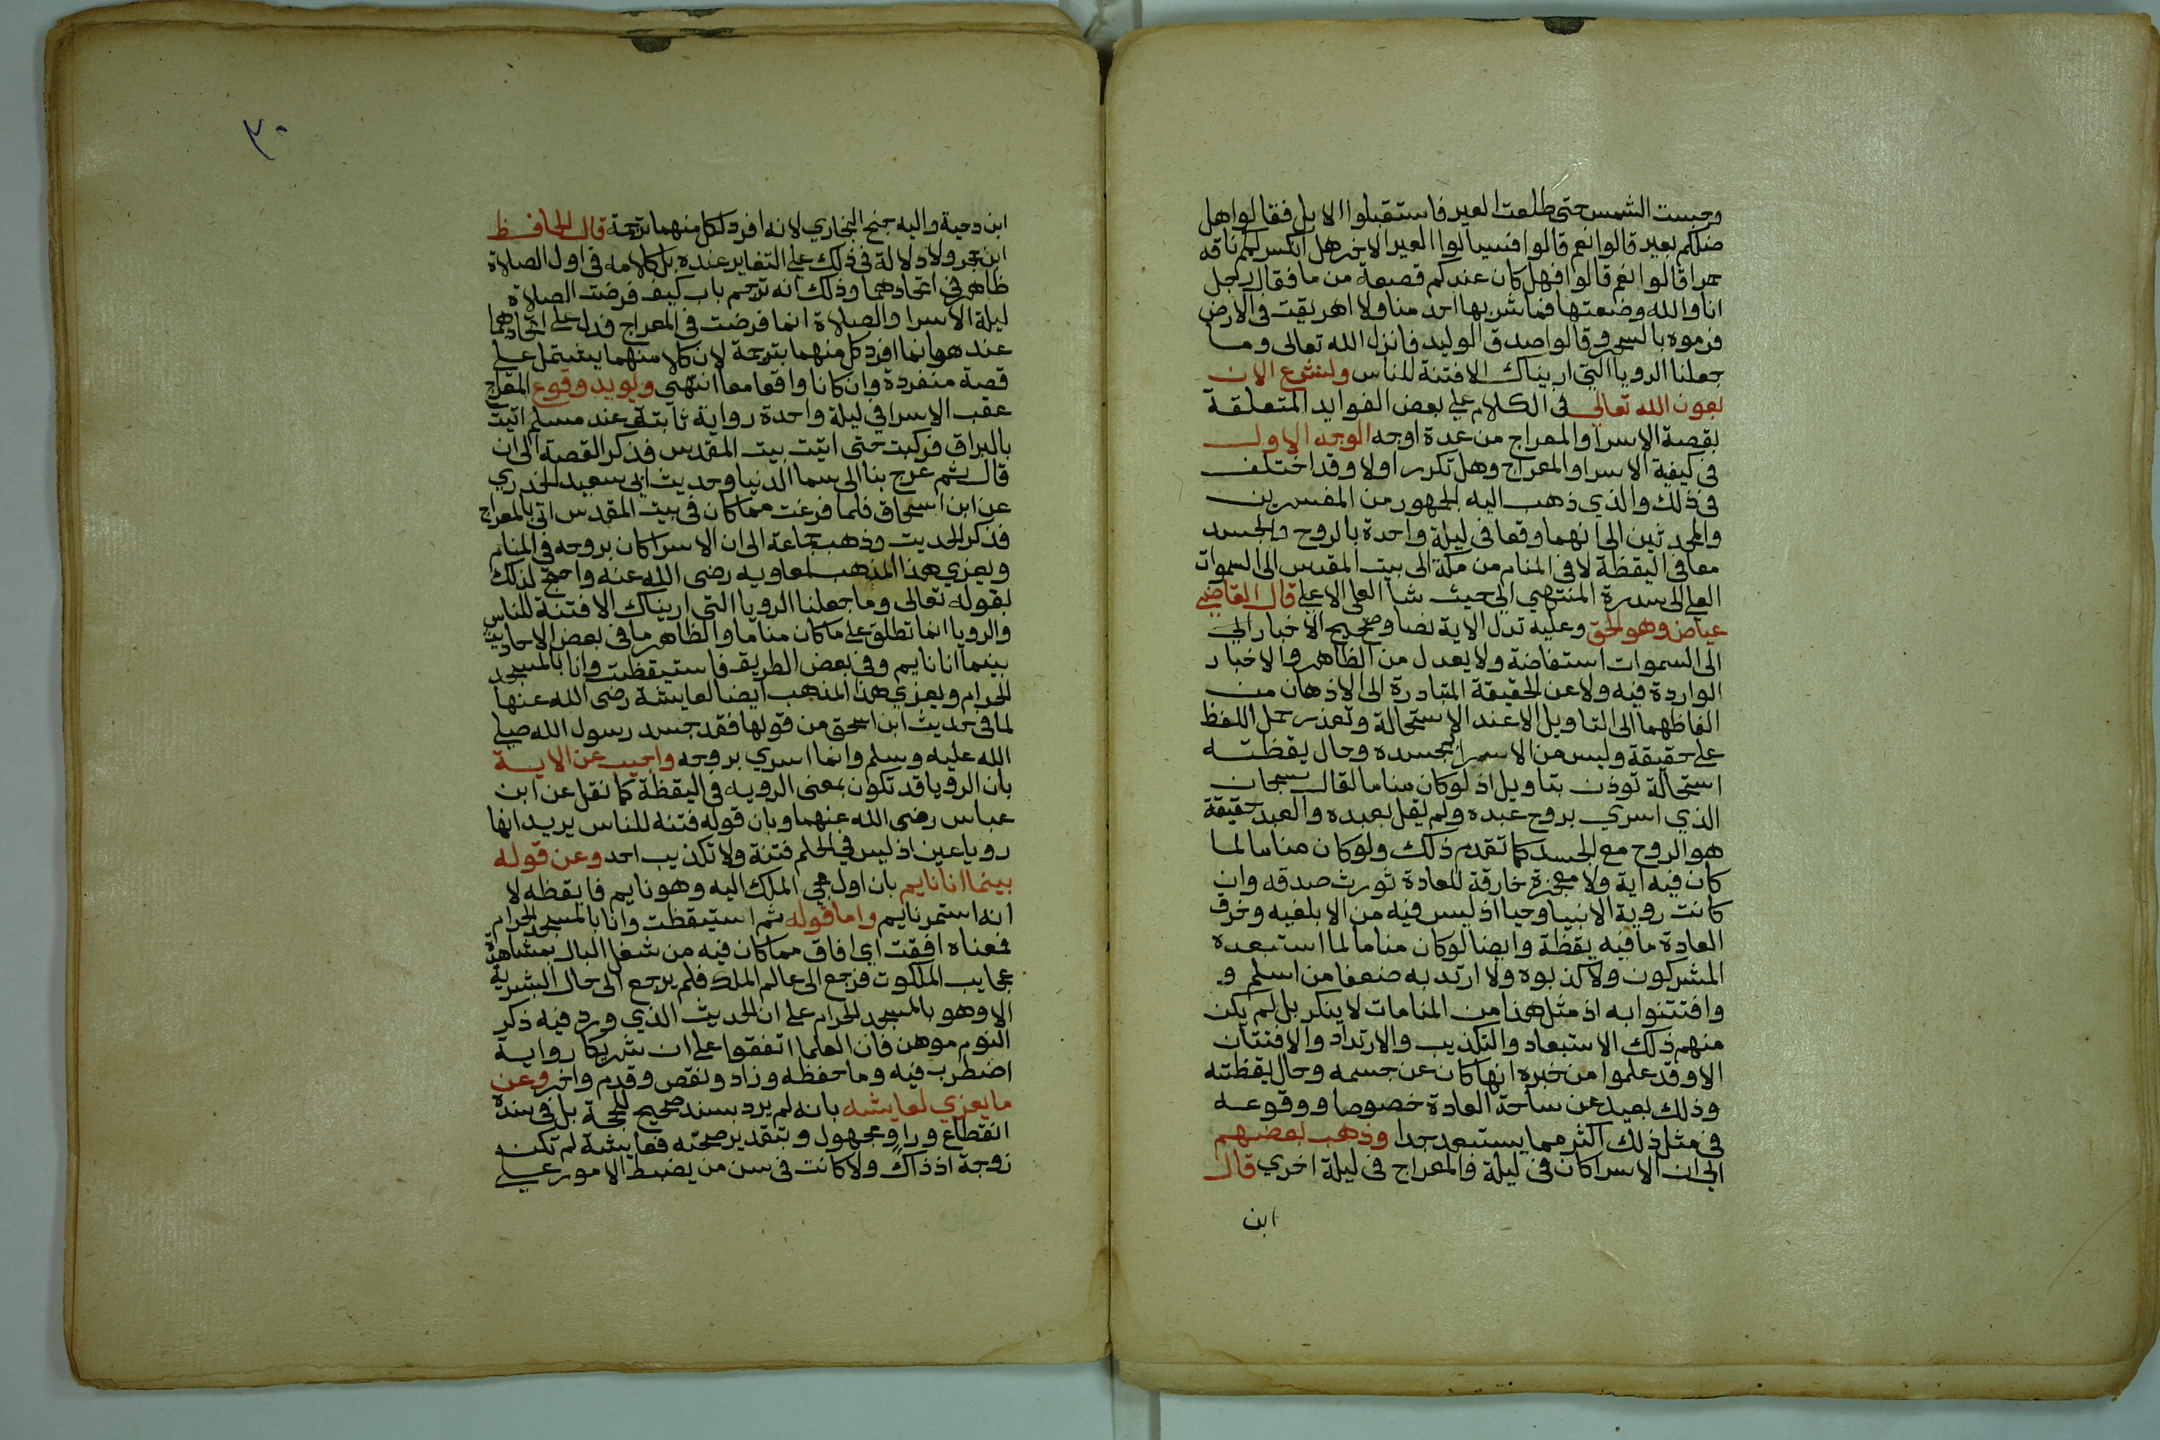 وحبست الشمس حتى طلعت العير فاستقبلوا الابل فقالوا هل
ضلكم بعير قالوا نعم قالوا فنسيالوا العير الاخر هل انكسر لكم ناقه
حمرا قالوا نعم قالوا فهل كان عندكم قصعة من ما فقال رجل
انا والله وضعتها فما شربها احد منا ولا اهريقت في الارض
فرموه بالسحر وقالوا صدق الوليد فانزل الله تعالى وما
جعلنا الرويا التي اريناك الا فتنة للناس ولنشرع الان
بعون الله تعالى في الكلام على بعض الفوايد المتعلقة
بقصة الاسرا والمعراج من عدة اوجه الوجه الاول
في كيفية الاسرا والمعراج وهل تكرر اولا وقد اختلف
في ذلك والذي ذهب اليه الجمهور من المفسرين
والمحدثين الى انهما وقعا في ليلة واحدة بالروح والجسد
معا في اليقظة لا في المنام من مكة الى بيت المقدس الى السموات
العلى الى سدرة المنتهى الى حيث شا العلى الاعلى قال القاضي
عياض وهو الحق وعليه تدل الاية نصا وصحيح الاخبار الى
الى السموات استفاضة ولا يعدل من الظاهر والاخبار
الواردة فيه ولا عن الحقيقة المتبادرة الى الاذهان من
الفاظهما الى التاويل الا عند الاستحالة وتعذر حمل اللفظ
على حقيقة وليس من الاسرا بجسده وحال يقظته
استحالة توذن بتاويل اذ لو كان مناما لقال سبحان
الذي اسري بروح عبده ولم يقل بعبده والعبد حقيقة
هو الروح مع الجسد كما تقدم ذلك ولو كان مناما لما
كان فيه اية ولا معجزة خارقة للعادة تورث صدقه وان
كانت روية الانبيا وحيا اذ ليس فيه من الابلغيه وخرق
العادة ما فيه يقظة وايضا لو كان مناما لما استبعده
المشركون ولا كذبوه ولا ارتد به ضعفا من اسلم و
وافتتنوا به اذ مثل هذا من المنامات لا ينكر بل لم يكن
منهم ذلك الاستبعاد والتكذيب والارتداد والافتتان
الا وقد علموا من خبره انها كان عن جسمه وحال يقظته
وذلك بعيد عن ساحة العادة خصوصا ووقوعه
في مثل ذلك اكثر مما يستبعد جدا وذهب بعضهم
الى ان الاسرا كان في ليلة والمعراج في ليلة اخري قال
ابن
٣٠
ابن دحية واليه جنح البخاري لانه افرد لكل منهما ترجمة قال الحافظ
ابن حجر ولا دلالة في ذلك على التغاير عنده بل كلامه في اول الصلاة
ظاهر في اتحادهما وذلك انه ترجم باب كيف فرضت الصلاة
ليلة الاسرا والصلاة انما فرضت في المعراج فدل على اتحادهما
عنده وانما افرد كل منهما بترجمة لان كلا منهما يشتمل على
قصة منفردة وان كانا وقعا معا انتهى ويويد وقوع المعراج
عقب الاسرا في ليلة واحدة رواية ثابتة عند مسلم اتيت
بالبراق فركبت حتى اتيت بيت المقدس فذكر القصة الى ان
قال ثم عرج بنا الى سما الدنيا وحديث ابي سعيد الخدري
عن ابن اسحاق فلما فرغت مما كان في بيت المقدس اتى بالمعراج
فذكر الحديث وذهب جماعة الى ان الاسرا كان بروحه في المنام
ويعزي هذا المذهب لمعاويه رضى الله عنه واحتج لذلك
بقوله تعالى وما جعلنا الرويا التى اريناك الا فتنة للناس
والرويا انما تطلق على ما كان مناما والظاهر ما في بعض الاحاديث
بينما انا نايم وفي بعض الطريق فاستيقظت وانا بالمسجد
الحرام ويعزي هذا المذهب ايضا لعايشة رضى الله عنها
لما في حديث ابن اسحق من قولها فقد جسد رسول الله صلى
الله عليه وسلم وانما اسري بروحه واجيب عن الاية
بان الرويا قد تكون بمعنى الرويه في اليقظة كما نقل عن ابن
عباس رضى الله عنهما وبان قوله فتنه للناس يريد انها
رويا عين اذ ليس في الحلم فتنة ولا تكذيب احد وعن قوله
بينما انا نايم بان اول مجي الملك اليه وهو نايم فايقظه لا
انه استمر نايم واما قوله ثم استيقظت وانا بالمسجد الحرام
فمعناه افقت اي افاق مما كان فيه من شغل البال بمشاهدة
عجايب الملكوت فرجع الى عالم الملك فلم يرجع الى حال البشرية
الا وهو بالمسجد الحرام على ان الحديث الذي ورد فيه ذكر
النوم موهن فان العلما اتفقوا على ان شريكا رواية
اضطرب فيه وما حفظه وزاد ونقص وقدم واخر وعن
ما يعزي لعايشه بانه لم يرد بسند صحيح للحجة بل في سنده
انقطاع وراو مجهول وبتقدير صحته فعايشة لم تكن
زوجة اذ ذاك ولا كانت في سن من يضبط الامور على